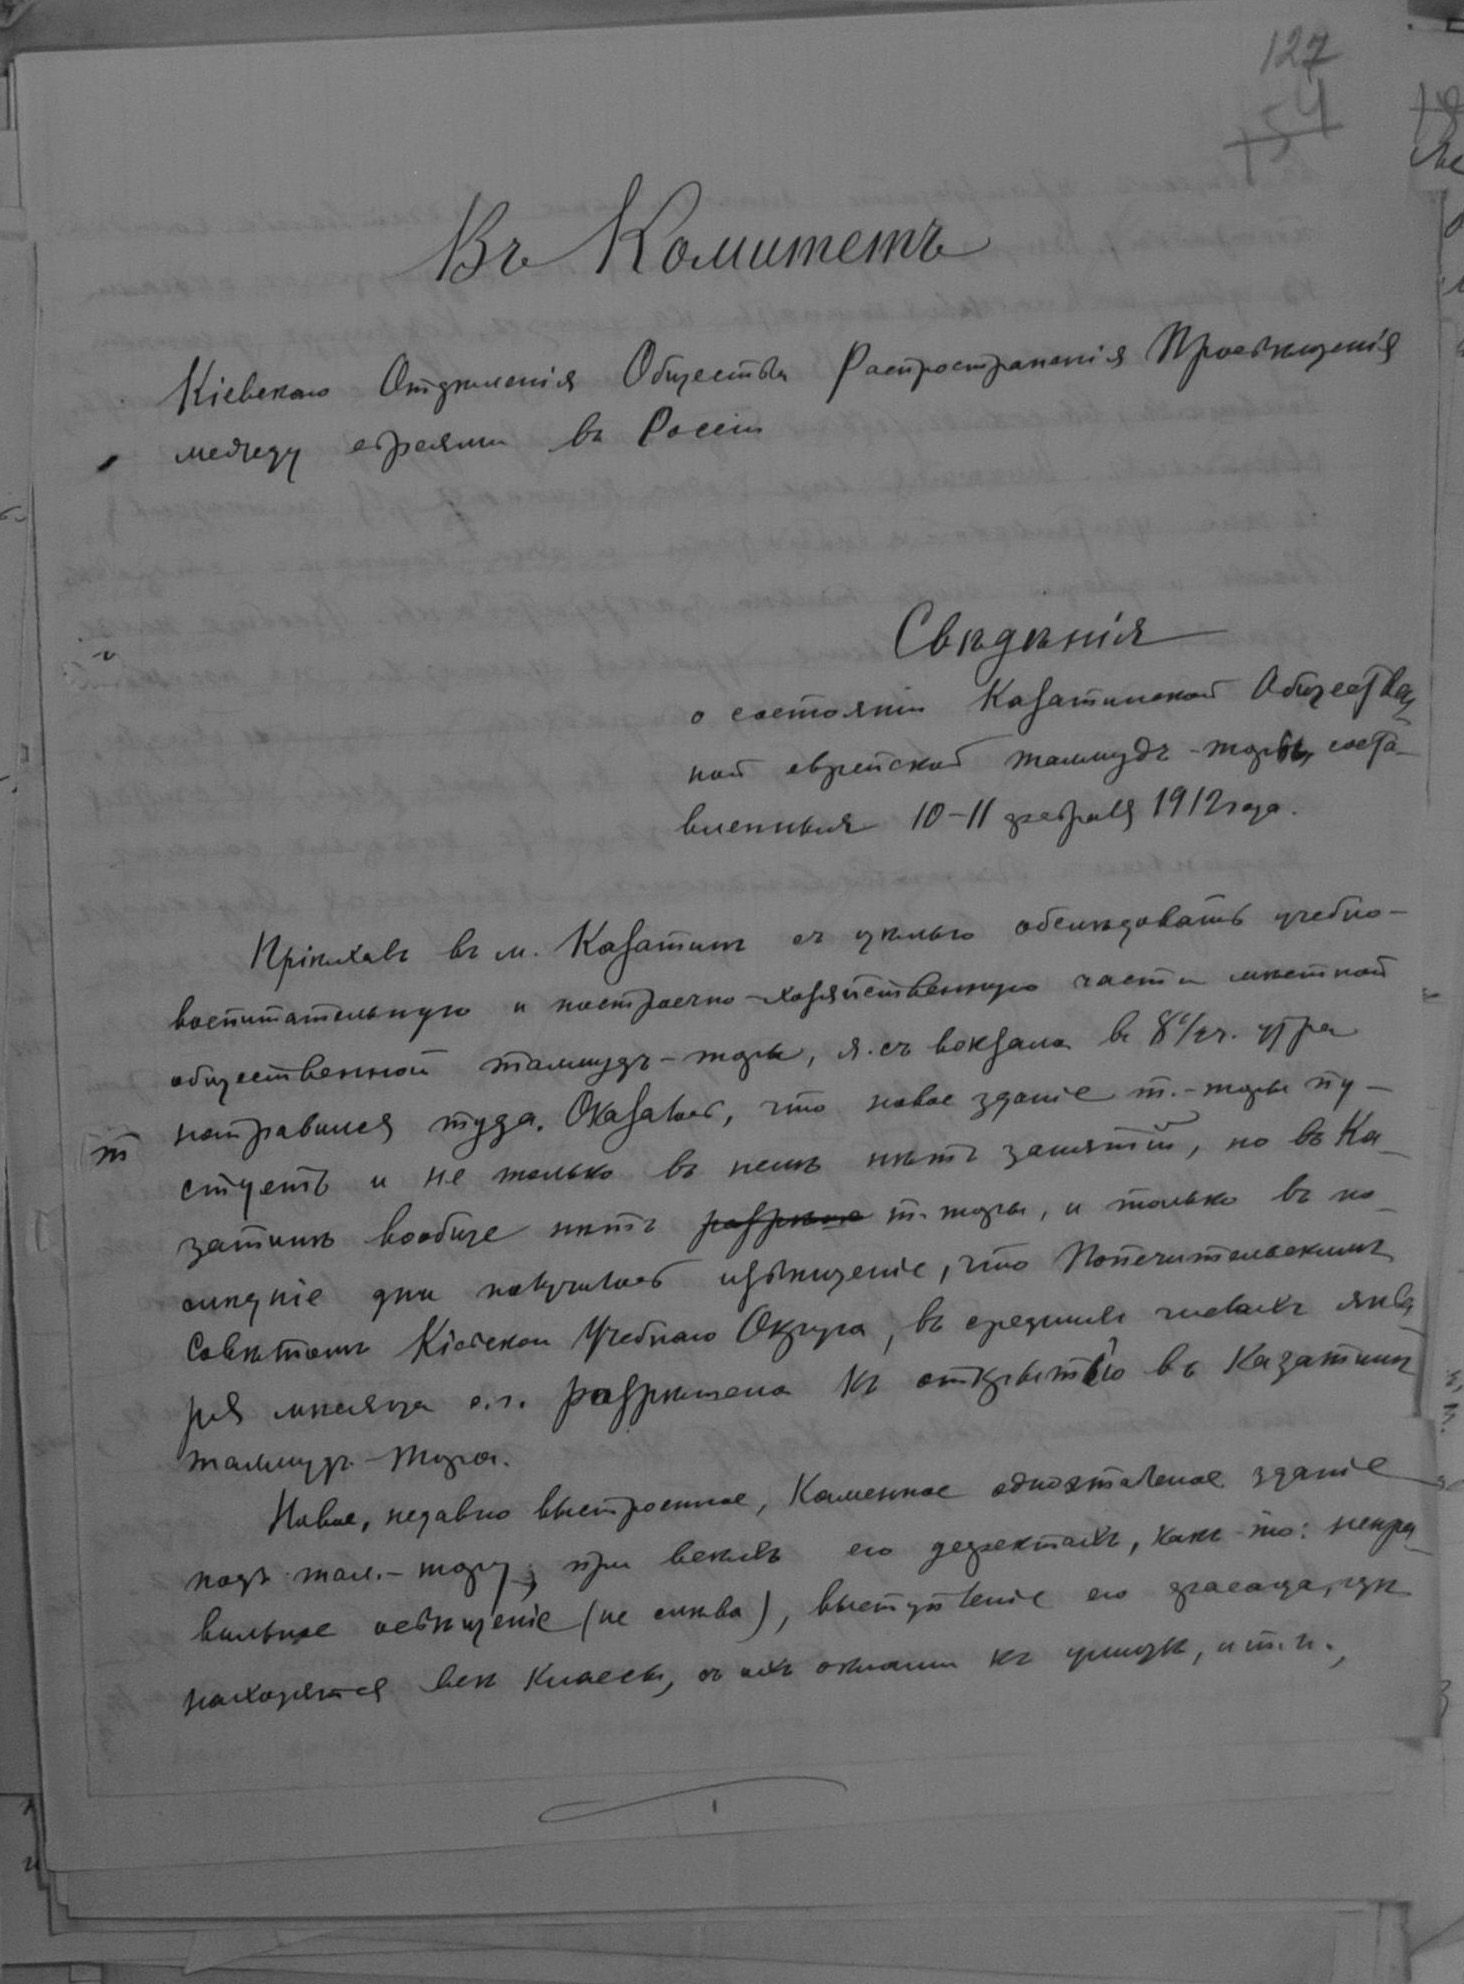 127
154
Въ Комитетъ
Кіевскаго Отдѣленія Общества Распространенія Просвѣщенія
между евреями въ Россіи
Свѣдѣнія
о состояніи Казатинской Обществен
ной еврейской талмудъ-торы, соста-
вленныя 10-11 февраля 1912 года.
Пріѣхавъ въ м. Казатинъ съ цѣлью обслѣдовать учебно-
воспитательную и построечно-хозяйственную части мѣстной
общественной талмудъ-торы, я съ вокзала въ 8 1/2 ч. утра
направился туда. Оказалось, что новое зданіе т.-торы пу-
стуетъ и не только въ немъ нѣтъ занятій, но въ Ка-
затинѣ вообще нѣтъ т-торы, и только въ по-
слѣдніе дни получилось извѣщеніе, что Попечительскимъ
Совѣтомъ Кіевскаго Учебнаго Округа, въ среднихъ числахъ янва
ря мѣсяца с.г. разрѣшена къ открытію въ Казатинѣ
талмудъ-тора.
Новое, недавно выстроенное, каменное одноэтажное зданіе
подъ тал.-тору, при всѣхъ его дефектахъ, какъ-то: непра
вильное освѣщеніе (не слѣва), выступленіе его фасада, гдѣ
находятся всѣ классы, съ ихъ окнами къ улицѣ, и т.п.,